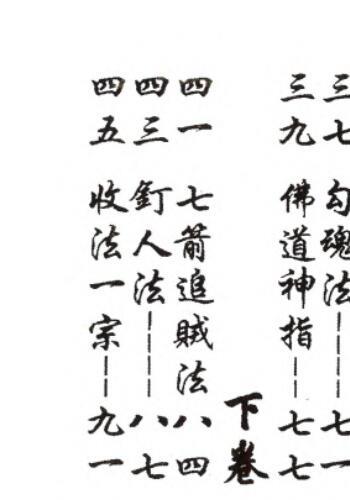 三七 勾魂法———七一
三九 佛道神指——七七
下卷
四一 七箭追賊法八四
四三 釘人法———八七
四五 收法一宗——九一